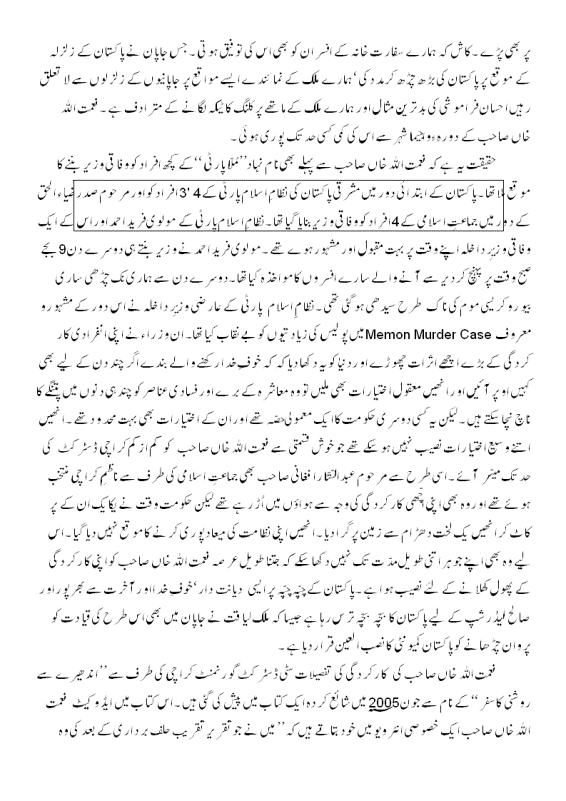 پر بھی پڑے۔ کاش کہ ہمارے سفارت خانہ کے افسران کو بھی اس کی توفیق ہوتی۔ جس جاپان نے پاکستان کے زلزلہ
کے موقع پر پاکستان کی بڑھ چڑھ کر مدد کی' ہمارے ملک کے نمائندے ایسے مواقع پر جاپانیوں کے زلزلوں سے لا تعلق
رہیں احسان فراموشی کی بدترین مثال اور ہمارے ملک کے ماتھے پر کلنک کا ٹیکہ لگانے کے مترادف ہے۔ نعمت اللہ
خاں صاحب کے دورہ واجیما شہر سے اس کی کمی کسی حد تک پوری ہوئی۔
حقیقت یہ ہے کہ نعمت اللہ خاں صاحب سے پہلے بھی نام نہاد ''مُلّا پارٹی'' کے کچھ افراد کو وفاقی وزیر بننے کا
موقع ملا تھا۔ پاکستان کے ابتدائی دور میں مشرقی پاکستان کی نظام اسلام پارٹی کے 4'3 افراد کو اور مرحوم صدر ضیاء الحق
کے دور میں جماعت اسلامی کے 4 افراد کو وفاقی وزیر بنایا گیا تھا۔ نظام اسلام پارٹی کے مولوی فرید احمد اور اس کے ایک
وفاقی وزیر داخلہ اپنے وقت پر بہت مقبول اور مشہور ہوے تھے۔ مولوی فرید احمد نے وزیر بنتے ہی دوسرے دن 9 بجے
صبح وقت پر پہنچ کر دیر سے آنے والے سارے افسروں کا مواخذہ کیا تھا۔ دوسرے دن سے ہماری تک چڑھی ساری
بیوروکریسی موم کی ناک طرح سیدھی ہو گئی تھی۔ نظام اسلام پارٹی کے عارضی وزیر داخلہ نے اس دور کے مشہور و
معروف Memon Murder Case میں پولیس کی زیادتیوں کو بے نقاب کیا تھا۔ ان وزراء نے اپنی انفرادی کار
کردگی کے بڑے اچھے اثرات چھوڑے اور دنیا کو یہ دکھا دیا کہ کہ خوفِ خدا رکھنے والے بندے اگر چند دن کے لیے بھی
کہیں اوپر آئیں اور انھیں معقول اختیارات بھی ملیں تو وہ معاشرہ کے برے اور فسادی عناصر کو چند ہی دنوں میں پتنگے کا
ناچ نچا سکتے ہیں۔ لیکن یہ کسی دوسری حکومت کا ایک معمولی حصّہ تھے اور ان کے اختیارات بھی بہت محدود تھے۔ انھیں
اتنے وسیع اختیارات نصیب نہیں ہو سکے تھے جو خوش قسمتی سے نعمت اللہ خاں صاحب کو کم از کم کراچی ڈسٹرکٹ کی
حد تک میسر آئے۔ اسی طرح سے مرحوم عبدالستار افغانی صاحب بھی جماعت اسلامی کی طرف سے ناظمِ کراچی منتخب
ہوئے تھے اور وہ بھی اپنی اچھی کارکردگی کی وجہ سے ہواؤں میں اُڑ رہے تھے لیکن حکومت وقت نے یکایک ان کے پر
کاٹ کر انھیں یک لخت دھڑام سے زمین پر گرا دیا۔ انھیں اپنی نظامت کی میعاد پوری کرنے کا موقع نہیں دیا گیا۔ اس
لیے وہ بھی اپنے جوہر اتنی طویل مدّت تک نہیں دکھا سکے کہ جتنا طویل عرصہ نعمت اللہ خاں صاحب کو اپنی کارکردگی
کے پھول کھلانے کے لئے نصیب ہوا ہے۔ پاکستان کے چپّہ چپّہ پر ایسی دیانت دار' خوفِ خدا اور آخرت سے بھرپور اور
صالح لیڈرشپ کے لیے پاکستان کا بچّہ بچّہ ترس رہا ہے جیسا کہ ملک لیاقت نے جاپان میں بھی اس طرح کی قیادت کو
پروان چڑھانے کو پاکستان کمیونٹی کا نصب العین قرار دیا ہے۔
نعمت اللہ خاں صاحب کی کارکردگی کی تفصیلات سٹی ڈسٹرکٹ گورنمنٹ کراچی کی طرف سے ''اندھیرے سے
روشنی کا سفر'' کے نام سے جون 2005 میں شائع کردہ ایک کتاب میں پیش کی گئی ہیں۔ اس کتاب میں ایڈوکیٹ نعمت
اللہ خاں صاحب ایک خصوصی انٹرویو میں خود بتاتے ہیں کہ ''میں نے جو تقریر تقریب حلف برداری کے بعد کی وہ